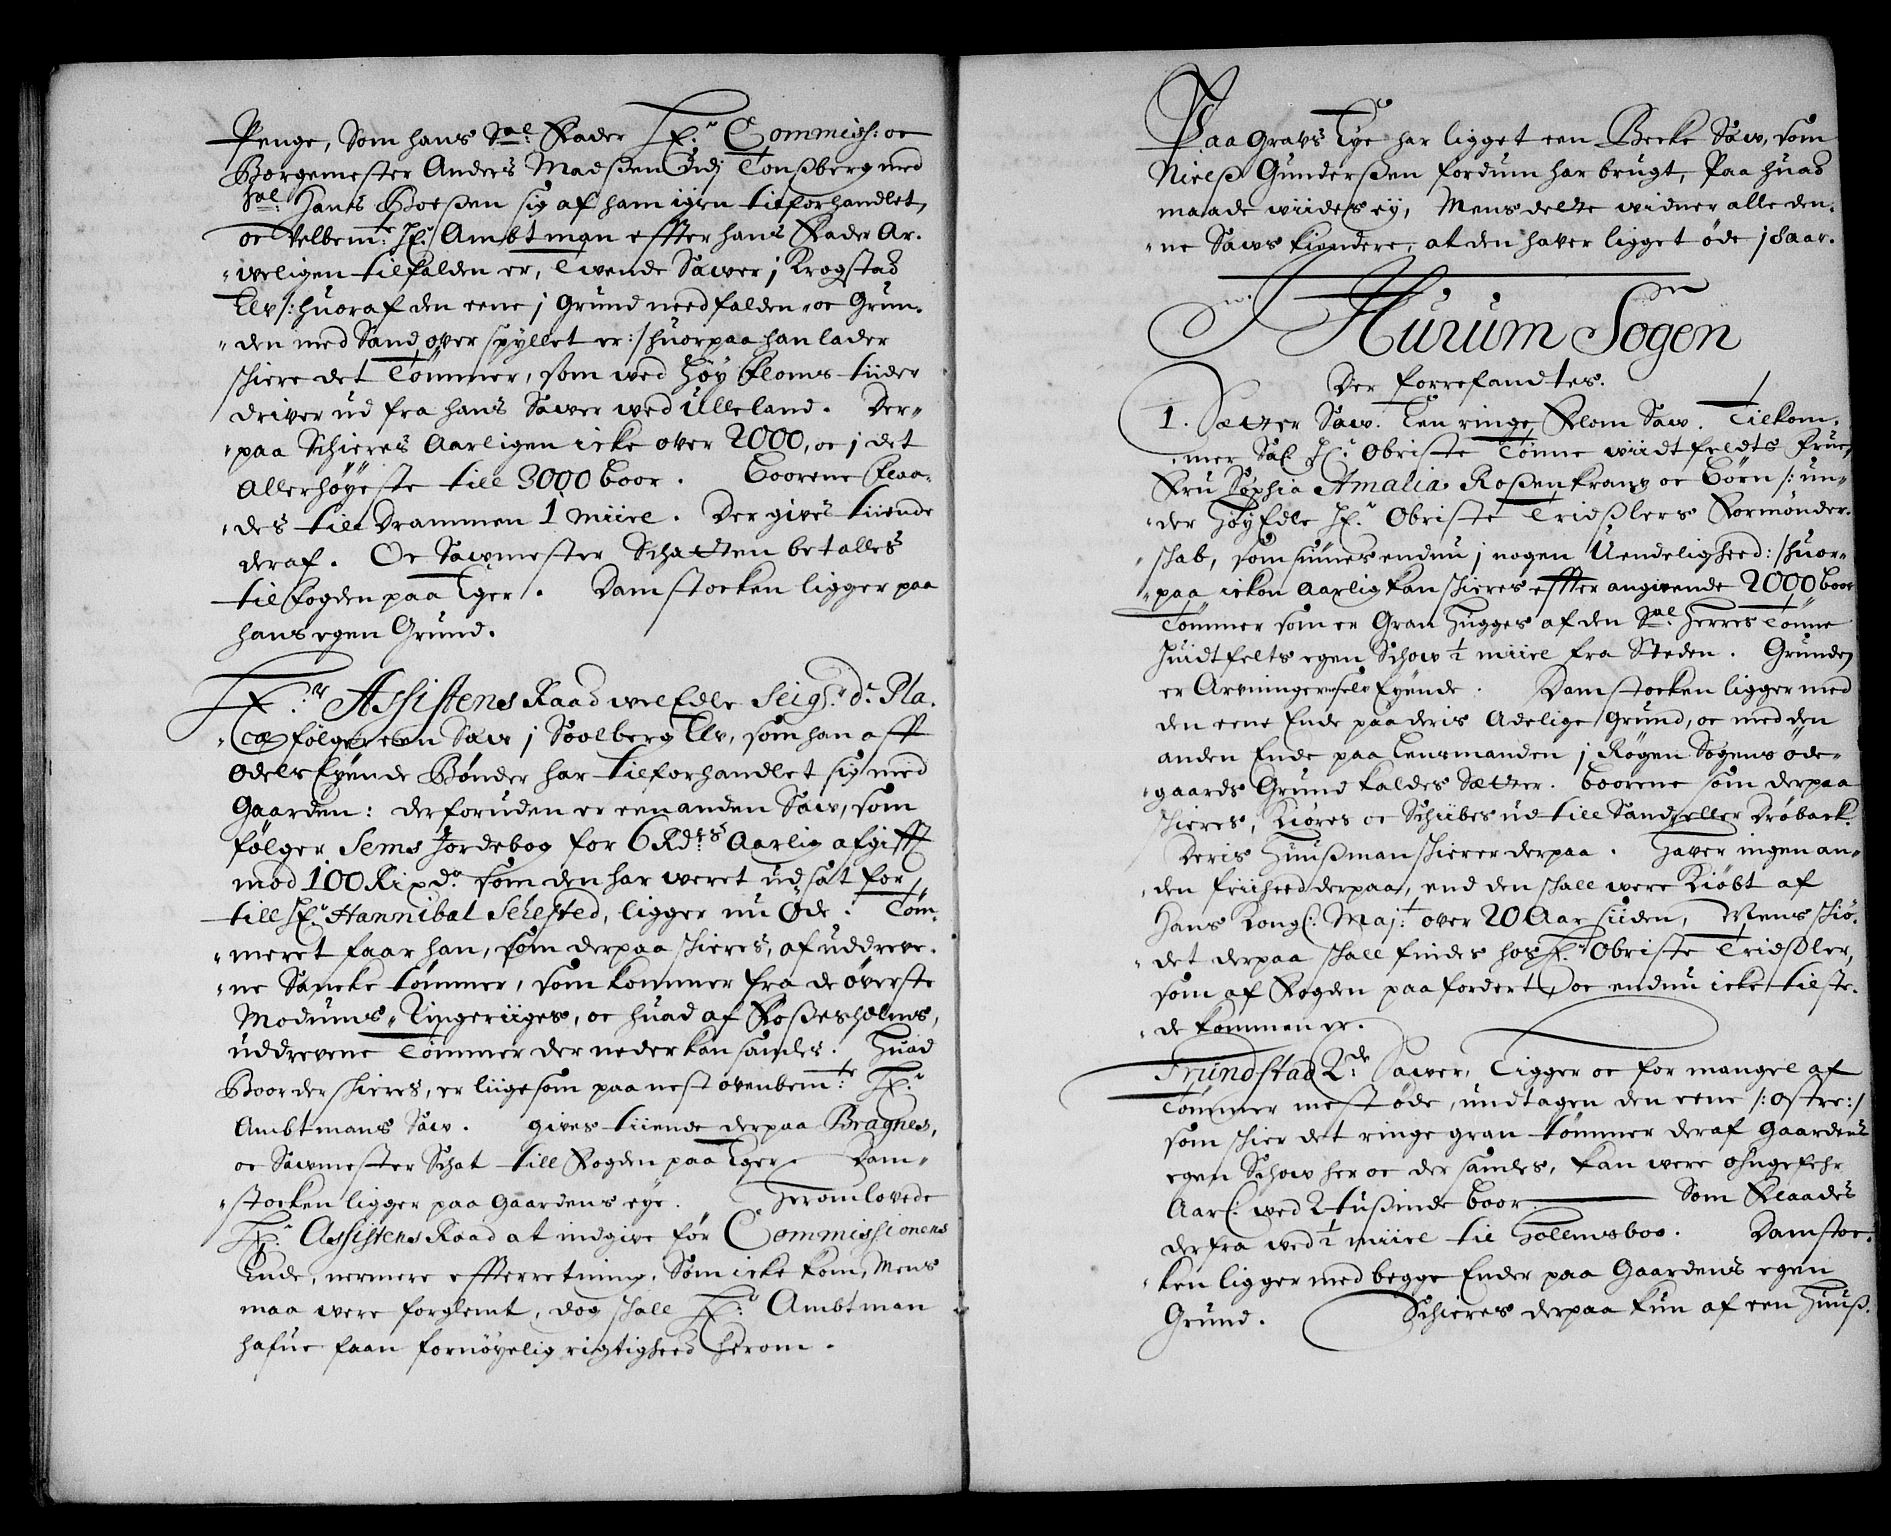 Penge, Som hans Sal: Fader Hr. Commiss: oc
Borgemester Anders Madsßen Udj Tonßberg med
Sal: Hans Boeßen sig af ham igien tilforhandlet,
oc Velbemte: Hr. Ambtman effter hans Fader Ar-
"weligen tilfalden er, Twende Sawer j Krogstad
Elv /: huoraf den eene j Grund needfalden oc Grun-
"den med Sand over spyllet er :/ huorpaa han lader
schiere det Tømmer, som wed Høy floms tiider
driver ud fra hans Sawer wed Ulleland. Der-
"paa Schieres Aarligen icke over 2000, oc j det
Allerhöyeste till 3000 boor. Boorene flaa-
"des till Drammen 1 miil. Der gives tiiende
deraf. Oc Sawmester Schatten betalles
til fogden paa Eger. Damstocken ligger paa
hans egen Grund.
Hr. Assistens Raad wel Edle Seigr. de Pla-
"cæ følger een Saw j Soolberg Elv, som han aff
Odels Eyende Bønder har tilforhandlet sig med
Gaarden: derforuden er een anden Saw, som
følger Sems Jordebog for 6 Rdrs Aarlig afgifft
mod 100 Rixdr. som den har weret udsat for,
till Hr. Hannibal Sehested, ligger nu Øde. Töm-
"meret faar han, som derpaa schieres, af uddreve-
"ne Sancke tømmer, som kommer fra de øverste
Modums, Ringeriiges, oc huad af Foßesholms,
uddrevene Tømmer der neder kan samles. Huad
Boor der schieres, er liigesom paa nest ovenbemte: Hr.
Ambtmans Saw. gives tiiende derpaa Bragnes,
oc Sawmester Schat till Fogden paa Eger. Dam-
"stocken ligger paa Gaardens eye. Herom lovede
Hr. Assistens Raad at indgive før Commissionens
Ende, nermere effterretning, Som icke kom, Mens
maa were forglemt, dog schall Hr: Ambtman
hafue faan fornøyelig rigtigheed herom.
Paa Gravs Eye har ligget een Becke Saw, som
Nielß Gunderßen fordum har brugt, Paa huad
maade wiides ey, Mens dette widner alle den-
"ne Saws kiendere, at den haver ligget øde j 8 aar.
I Hurum Sogen
Der forrefandtes.
1. Sætter Saw. Een ringe Flom Saw. Tilkom-
"mer Sal Hr: Obriste Tønne wiidtfeldts frue,
Fru Sophia Amalia Roßenkrantz oc Børn /: un-
"der HøyEdle Hr. Obriste Tridßlers Formønder-
"schab, som siunes endnu j nogen Uendeligheed :/ huor-
"paa ickon aarlig kan schieres effter angivende 2000 boor
Tømmer som er Gran Hugges af den Sal. Herres Tønne
Huidtfelts egen Schow 1/2 miil fra Steden. Grunden
er Arvingerne selv Eyende. Damstocken ligger med
den eene Ende paa deris Adelige Grund, oc med den
anden Ende paa Lensmanden j Røgen Sogens øde-
"gaards Grund kaldes Sætter. Boorene som derpaa
schieres, kiøres oc Schibes ud till Sand eller Drøback.
Deris Huußman schierer derpaa. Haver ingen an-
"den friiheed derpaa, end den schall were Kiøbt af
Hans Kongl: Majt: over 20 Aar siiden, Mens schiø-
"det derpaa schall findes hos Hr. Obriste Tridßler,
som af Fogden paa fordert, oc endnu icke tilste-
"de kommen er.
Tründstad 2de Sawer, Ligger oc for mangel af
Tømmer mest øde, undtagen den eene /: Ostre :/
som schier det ringe gran tømmer deraf Gaardens
egen Schow her oc der samles, kan were ohngefehr
Aarl. wed 2 tußinde boor. Som Flaades
derfra wed 1/2 miil til Holemsboo. Damstoc-
"ken ligger med begge Ender paa Gaardens egen
Grund. Schieres derpaa kun af een Huuß-